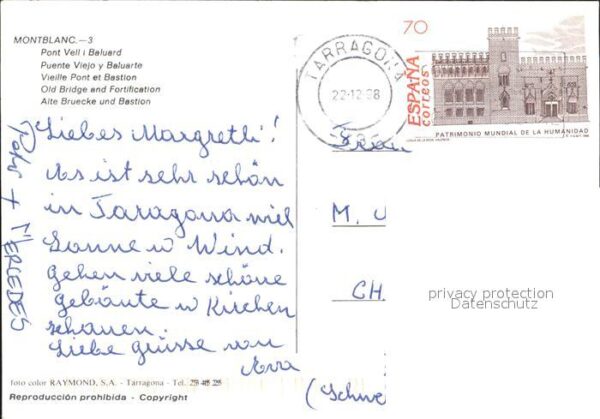 MONTBLANC.—3
Pont Vell i Baluard
Puente Viejo y Baluarte
Vieille Pont et Bastion
Old Bridge and Fortification
Alte Bruecke und Bastion
Liebes Margretli!
Es ist sehr schön
in Taragona viel
Sonne u Wind.
Gehen viele schöne
gebäute u Kirchen
schauen.
Liebe grüsse von
Eva
+ MERCEDES
foto color RAYMOND, S.A. - Tarragona - Tel.
Reproducción prohibida - Copyright
TARRAGONA
22-12-98
70
ESPAÑA
correos
PATRIMONIO MUNDIAL DE LA HUMANIDAD
Frau
M.
CH
(Schwe
privacy protection
Datenschutz